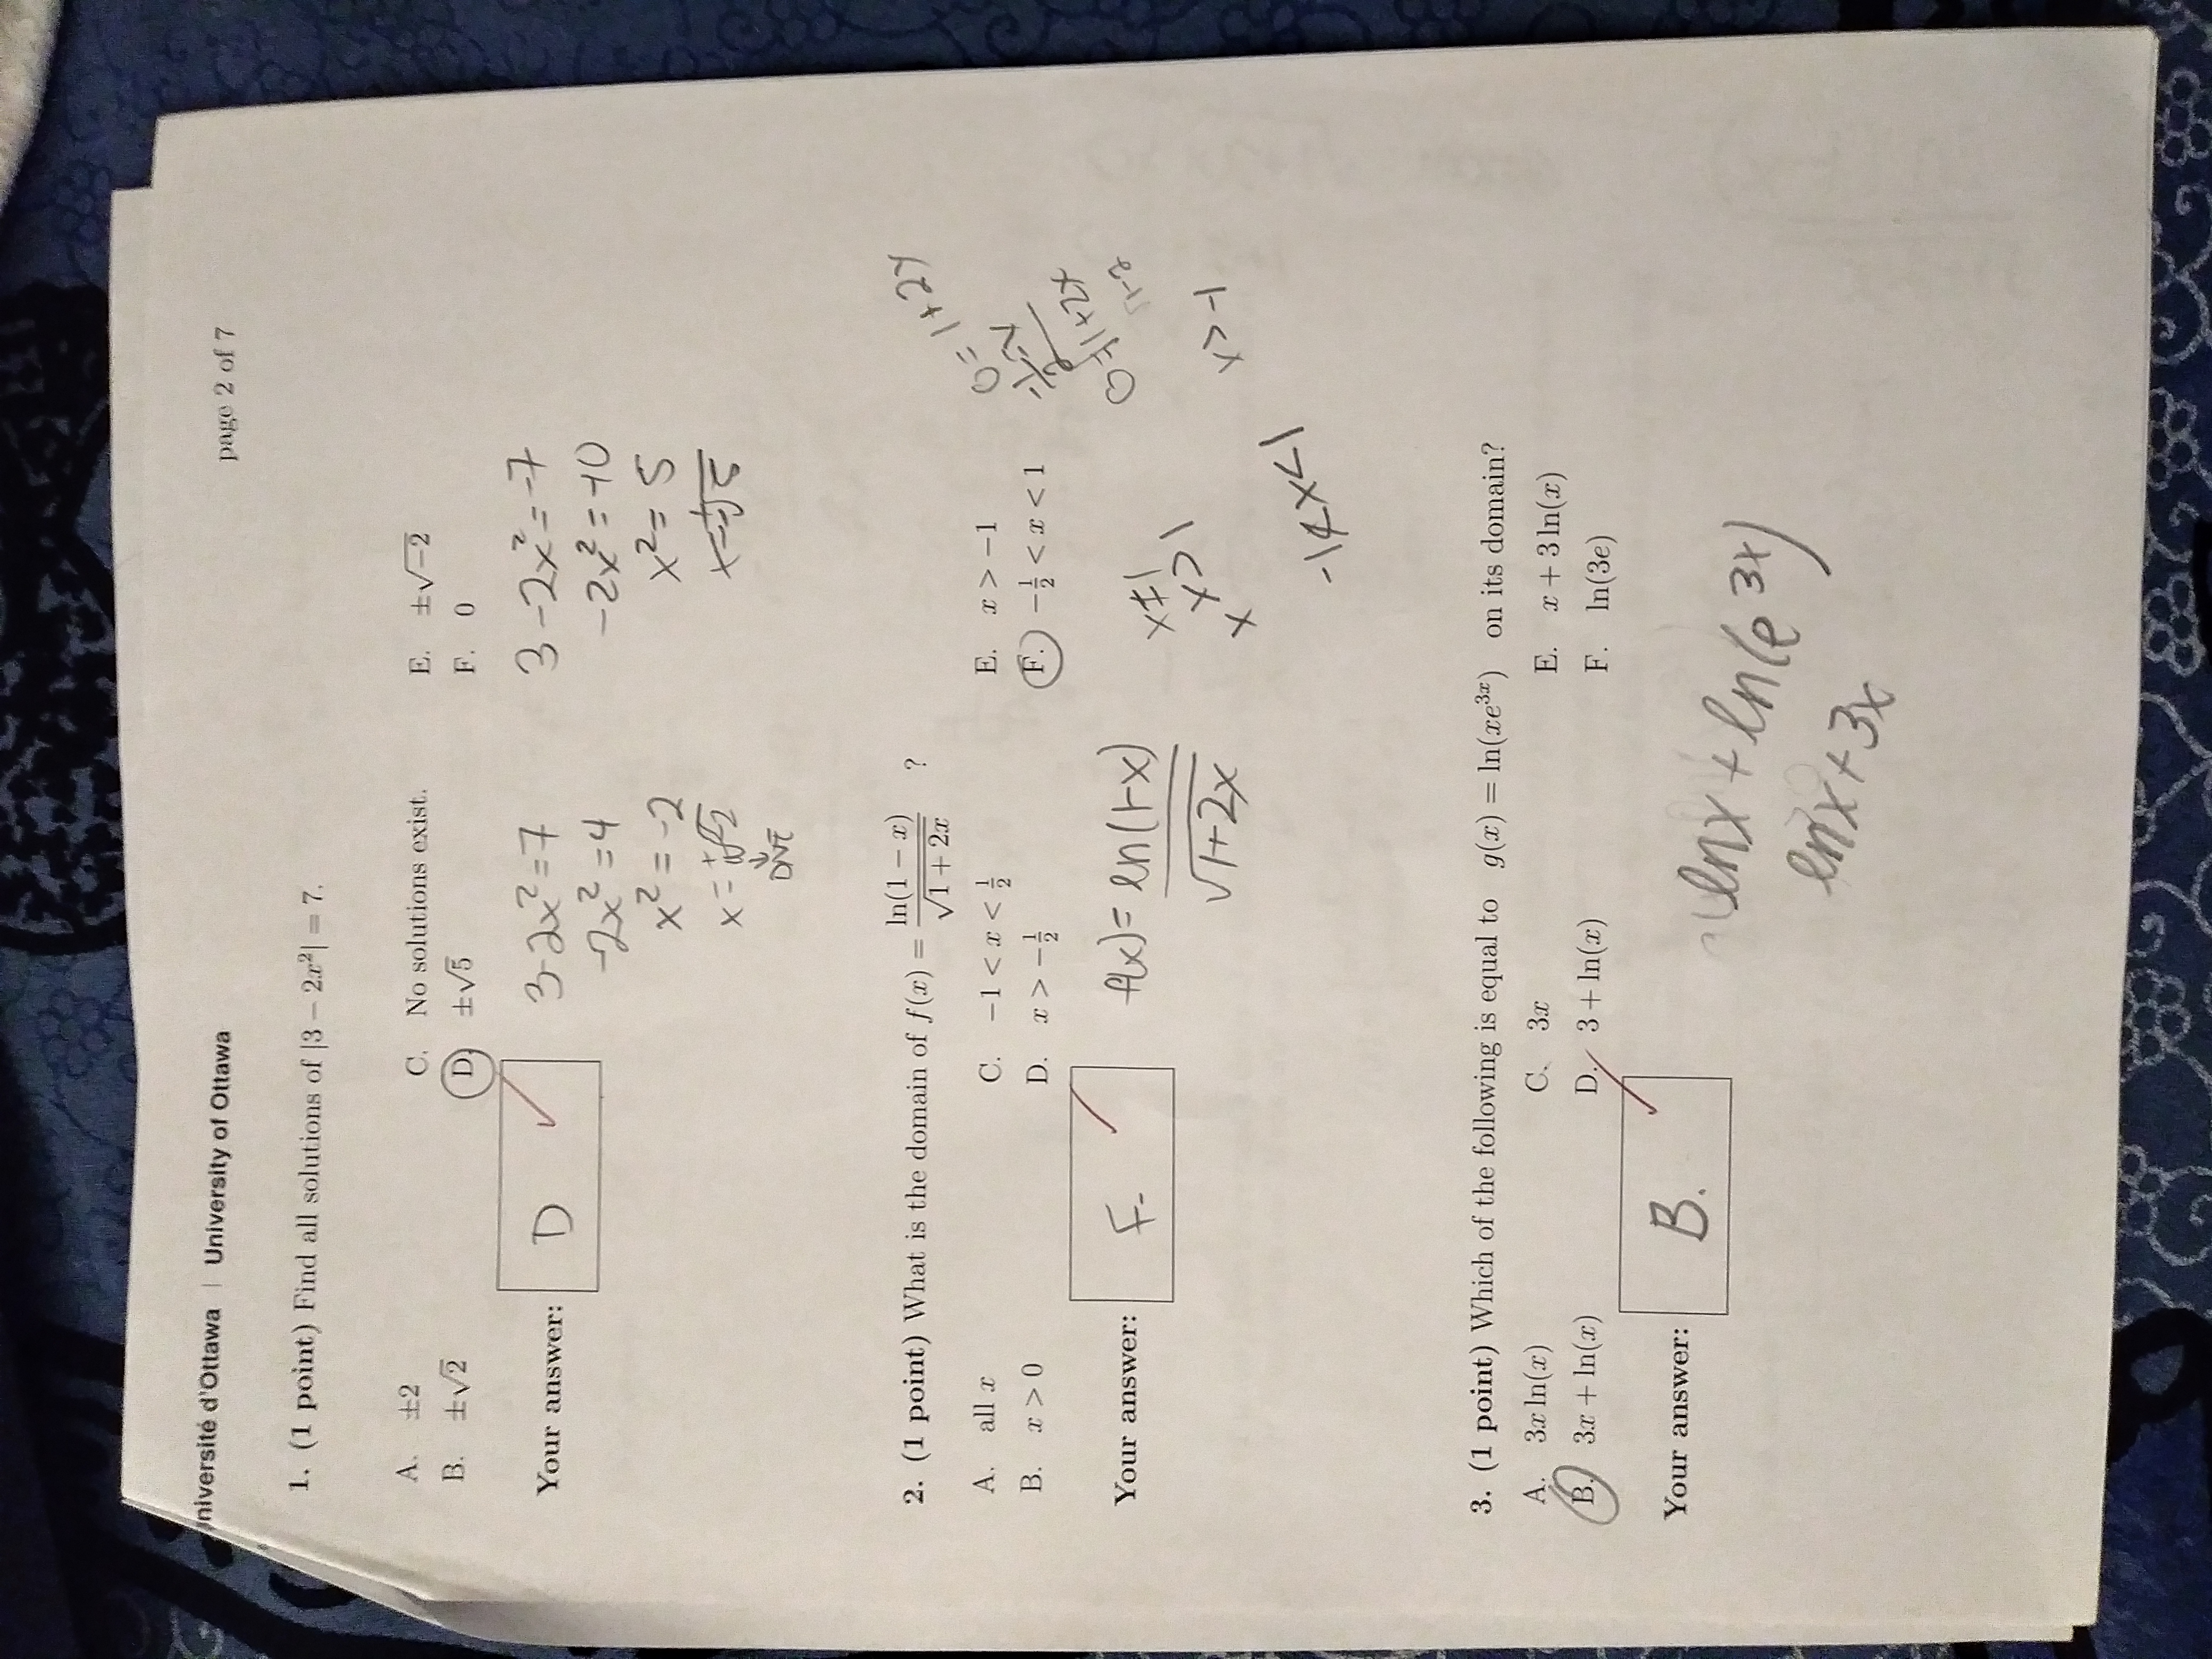 niversité d'Ottawa | University of Ottawa
page 2 of 7
1. (1 point) Find all solutions of |3 − 2x²| = 7.
A. ±2
B. ±√2
C. No solutions exist.
D. ±√5
E. ±√−2
F. 0
Your answer: D
3-2x²=7
-2x²=4
x²=-2
x=±√-2
DNE
3-2x²=-7
-2x²=-10
x²=5
x=±√5
2. (1 point) What is the domain of f(x) = ln(1 − x)/√1 + 2x ?
A. all x
B. x > 0
C. −1 < x < 1/2
D. x > −1/2
E. x > −1
F. −1/2 < x < 1
Your answer: F.
f(x)= ln(1-x)
√1+2x
x≠1
x>1
x
-1<x<1
0=1+2x
x>-1
3. (1 point) Which of the following is equal to g(x) = ln(xe³ˣ) on its domain?
A. 3x ln(x)
B. 3x + ln(x)
C. 3x
D. 3 + ln(x)
E. x + 3 ln(x)
F. ln(3e)
Your answer: B.
lnx + ln(e³ˣ)
lnx+3x